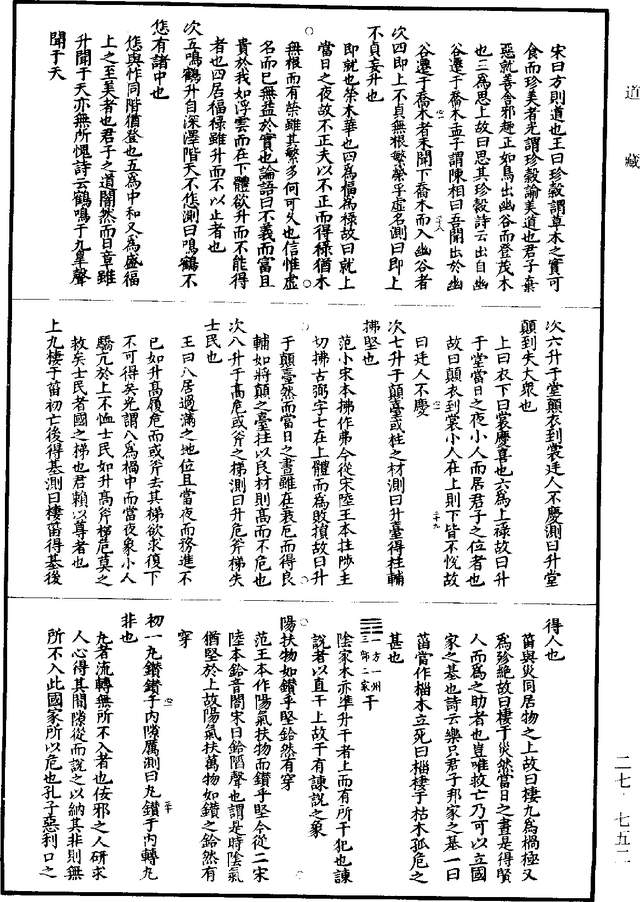 道藏
宋曰方則道也王曰珍穀謂草木之實可
食而珍美者光謂珍穀諭美道也君子棄
惡就善舍邪趣正如鳥出幽谷而登茂木
也三為思上故曰思其珍穀詩云出自幽
谷遷于喬木孟子謂陳相曰吾聞出於幽
谷遷于喬木者未聞下喬木而入幽谷者
次四即上不貞無根繁榮孚虛名測曰即上
不貞妄升也
即就也榮木華也四為福為祿故曰就上
當日之夜故不正夫以不正而得祿猶木
無根而有榮雖其繁多何可久也信惟虛
名而已無益於實也論語曰不義而富且
貴於我如浮雲而在下體欲升而不能得
者也四居福祿雖升而不以止者也
次五鳴鶴升自深澤階天不㤰測曰鳴鶴不
㤰有諸中也
㤰與怍同階猶登也五為中和又為盛福
上之至美者也君子之道闇然而日章雖
升聞于天亦無所愧詩云鶴鳴于九皐聲
聞于天
次六升于堂顛衣到裳廷人不慶測曰升堂
顛到失大衆也
上曰衣下曰裳慶喜也六為上祿故曰升
于堂當日之夜小人而居君子之位者也
故曰顛衣到裳小人在上則下皆不悅故
曰廷人不慶
次七升于顛臺或柱之材測曰升臺得柱輔
拂堅也
范小宋本拂作弗今從宋陸王本拄陟主
切拂古弼字七在上體而為敗損故曰升
于顛臺然而當日之晝雖在衰厄而得良
輔如將顛之臺拄以良材則高而不危也
次八升于高危或斧之梯測曰升危斧梯失
士民也
王曰八居過滿之地位且當夜而務進不
已如升高履危而或斧去其梯欲求復下
不可得矣光謂八為禍中而當夜象小人
驕亢於上不恤士民如升高斧梯危莫之
救矣士民者國之梯也君賴以尊者也
上九棲于菑初亡後得基測曰棲菑得基後
得人也
菑與災同居物之上故曰棲九為禍極又
為殄絕故曰棲于災然當日之晝是得賢
人而為之助者也豈唯救亡乃可以立國
家之基也詩云樂只君子邦家之基一曰
菑當作椔木立死曰椔棲于枯木孤危之
甚也
一方一州三部二家干
陰家木亦準升干者上而有所干犯也諫
說者以直干上故干有諫說之象
陽扶物如鑽乎堅鉿然有穿
范王本作陽氣扶物而鑽乎堅今從二宋
陸本鉿音閤宋曰鉿陷聲也謂是時陰氣
猶堅於上故陽氣扶萬物如鑽之鉿然有
穿
初一丸鑽鑽于內隙厲測曰丸鑽于內轉丸
非也
丸者流轉無所不入者也佞邪之人研求
人心得其間隙從而說之以納其非則無
所不入此國家所以危也孔子惡利口之
二七·七五二